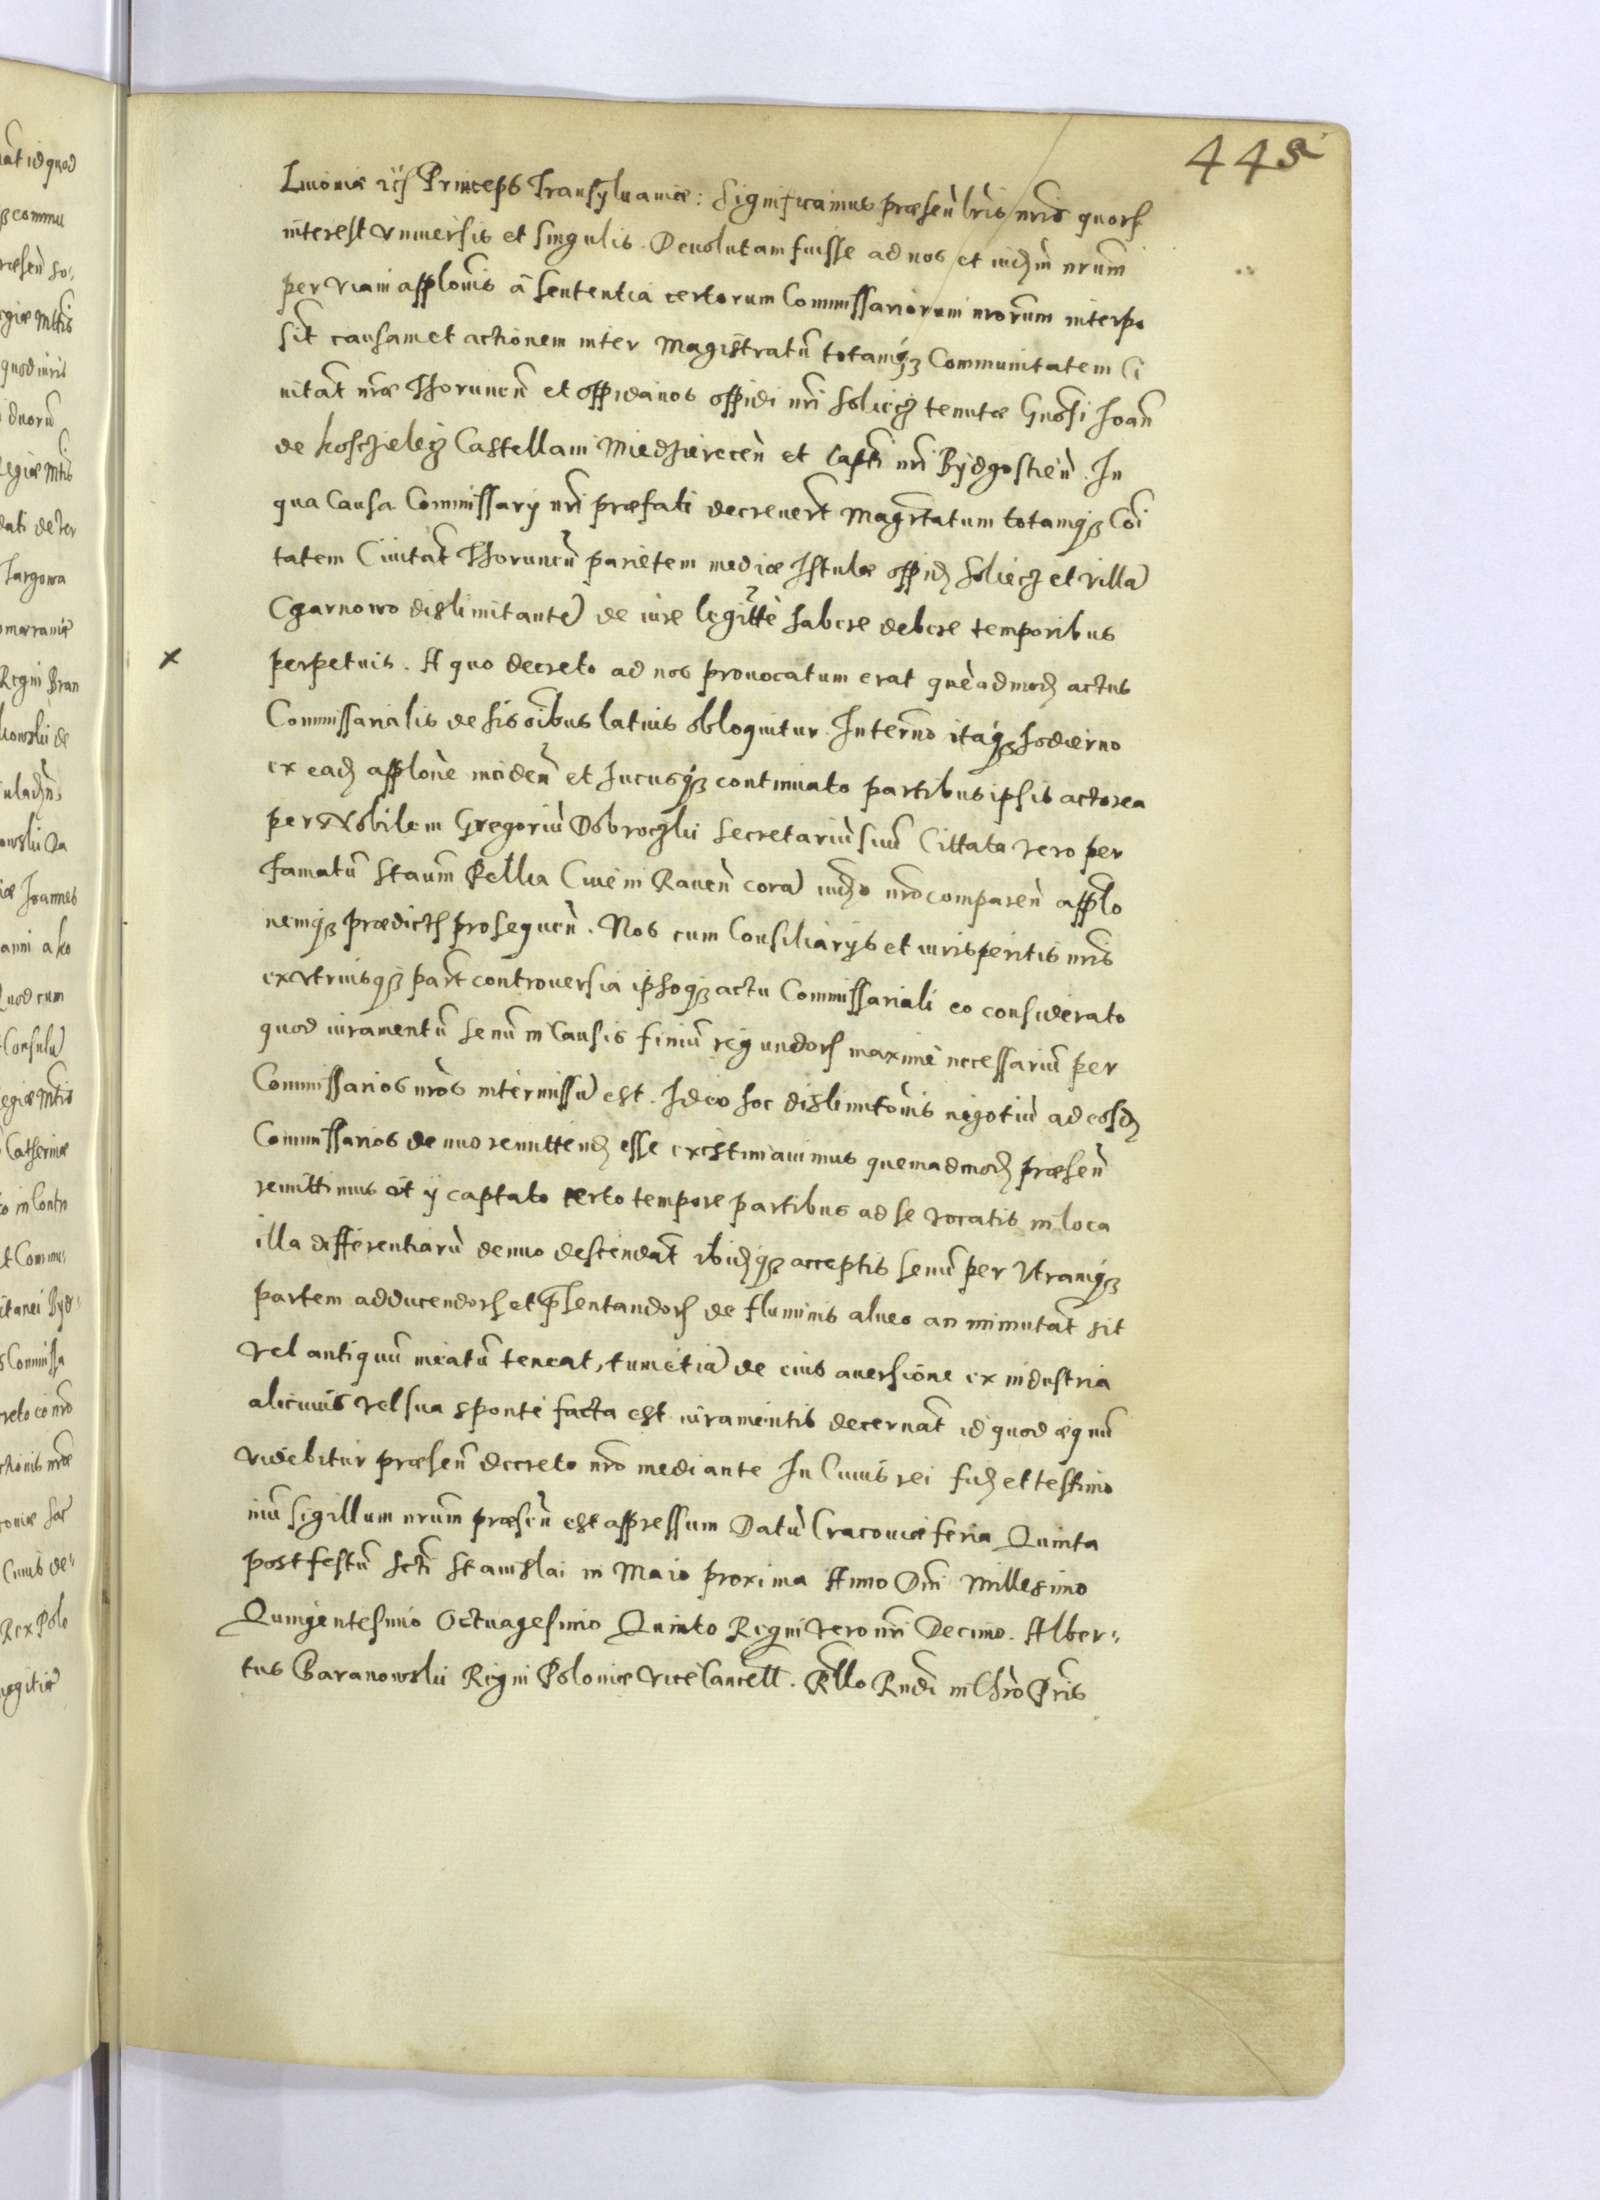 448
Liuoniæ etc Princeps Transyluaniæ: Significamus præsen lris nris quorum
interest vniuersis et singulis. Deuolutam fuisse ad nos et iudm nrum
per viam applonis â sententia certorum Commissariorum nrorum interpo
sit causam et actionem inter Magistratū totamq3 Communitatem Ci
uitat nræ Thoruncn et oppidanos oppidi nri Soliecz tenutæ Gnosi Joan
de Kosczielecz Castellani Miedzirecen et Capti nri Bydgostien. In
qua Causa Commissarij nri præfati decreuert Magratum totamq3 Coi
tatem Ciuitat Thoruncn parietem mediæ Istulæ oppid Soliecz et villa
Czarnowo dislimitante de iure legitte habere debere temporibus
x perpetuis. A quo decreto ad nos prouocatum erat quēadmod actus
Commissarialis de his oibus latius obloquitur. In terno itaq3 hodierno
ex ead applone inciden et hucusq3 continuato partibus ipsis actorea
per Nobilem Gregoriū Dobroczki Secretariū suū Cittata vero per
famatū Staum Pellia Ciuem Rauen corā iudo nro comparen applo
nemq3 prædict prosequen. Nos cum Consiliarijs et iurisperitis nris
ex vtriusq3 part controuersia ipsoq3 actu Commissariali eo considerato
quod iuramentū senū in Causis finiū regundor maximè necessariū per
Commissarios nros intermissū est. Ideo hoc dislimitonis negotiū ad eosd
Commissarios denuo remittend esse existimauimus quemadmod præsen
remittimus ut ij captato certo tempore partibus ad se vocatis in loca
illa differentiarū denuo descendat ibidq3 acceptis senū per vtramq3
partem adducendor et psentandor de fluminis alueo an immutat sit
vel antiquū meatū teneat, tum etiā de eius auersione ex industria
alicuius vel sua sponte facta est iuramentis decernat id quod æquū
videbitur præsen decreto nro mediante In Cuius rei fid et testimo
niū sigillum nrum præsen est appressum Datū Cracouiæ feria Quinta
post festū Scti Stanislai in Maio proxima Anno Dni Millesimo
Quingentesimo Octuagesimo Quinto Regni vero nri Decimo. Alber„
tus Baranowski Regni Poloniæ Vicecancell. Rllo Rndi in Chro Pris